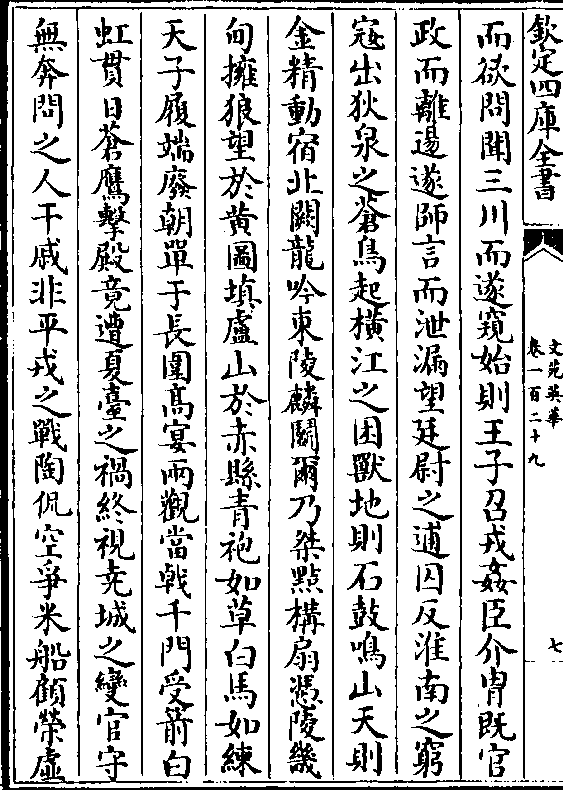 欽定四庫全書
文苑英華
卷一百二十九
七
而欲問聞三川而遂窺始則王子召戎姦臣介胄既官
政而離逷遂師言而泄漏望廷尉之逋囚反淮南之窮
宼出狄泉之蒼鳥起横江之困獸地則石鼓鳴山天則
金精動宿北闕龍吟東陵麟鬭爾乃桀黠構扇憑陵畿
甸擁狼望於黄圖填盧山於赤縣青袍如草白馬如練
天子履端廢朝單于長圍髙宴兩觀當㦸千門受箭白
虹貫日蒼鷹擊殿竟遭夏臺之禍終視堯城之變官守
無奔問之人干戚非平戎之戰陶侃空爭米船顧榮虚